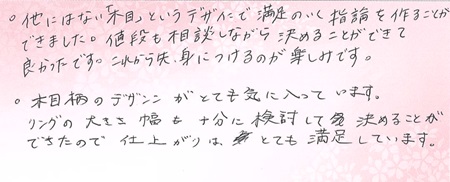 ○ 他にはない「木目」というデザインで満足のいく指論を作ることが
できました。値段も相談しながら決めることができて
良かったです。これから先、身につけるのが楽しみです。
○ 木目柄のデザインがとても気に入っています。
リングの大きさ 幅も 十分に検討して決めることが
できたので 仕上がりは、とても満足しています。